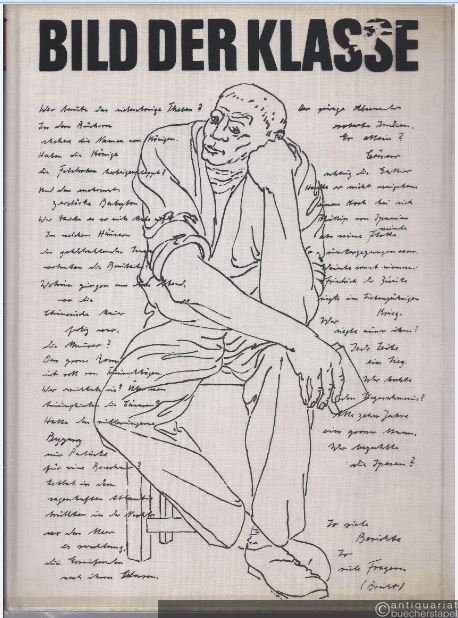 BILD DER KLASSE
Wer baute das siebentorige Theben?
In den Büchern
stehen die Namen von Königen.
Haben die Könige
die Felsbrocken herbeigeschleppt?
Und das mehrmals
zerstörte Babylon
Wer baute es so viele Male auf?
In welchen Häusern
des goldstrahlenden
wohnten die Bauleute?
Wohin gingen an dem Abend,
wo die
Chinesische Mauer
fertig war,
die Maurer?
Das grosse Rom
ist voll von Triumphbögen.
Wer errichtete sie? Über wen
triumphierten die Cäsaren?
Hatte das vielbesungene
Byzanz
nur Paläste
für seine Bewohner?
Selbst in dem
sagenhaften Atlantis
brüllten in der Nacht
wo das Meer
es verschlang,
die Ersaufenden
nach ihren Sklaven.
Der junge Alexander
eroberte Indien.
Er allein?
Cäsar
schlug die Gallier
Hatte er nicht wenigstens
einen Koch bei sich
Philipp von Spanien
weinte
als seine Flotte
untergegangen war.
Weinte sonst niemand?
Friedrich der Zweite
siegte im Siebenjährigen
Krieg.
Wer
siegte ausser ihm?
Jede Seite
ein Sieg.
Wer kochte
den Siegesschmaus?
Alle zehn Jahre
ein grosser Mann.
Wer bezahlte
die Spesen?
So viele
Berichte
So
viele Fragen.
(Brecht)
©antiquariat
buecherstapel